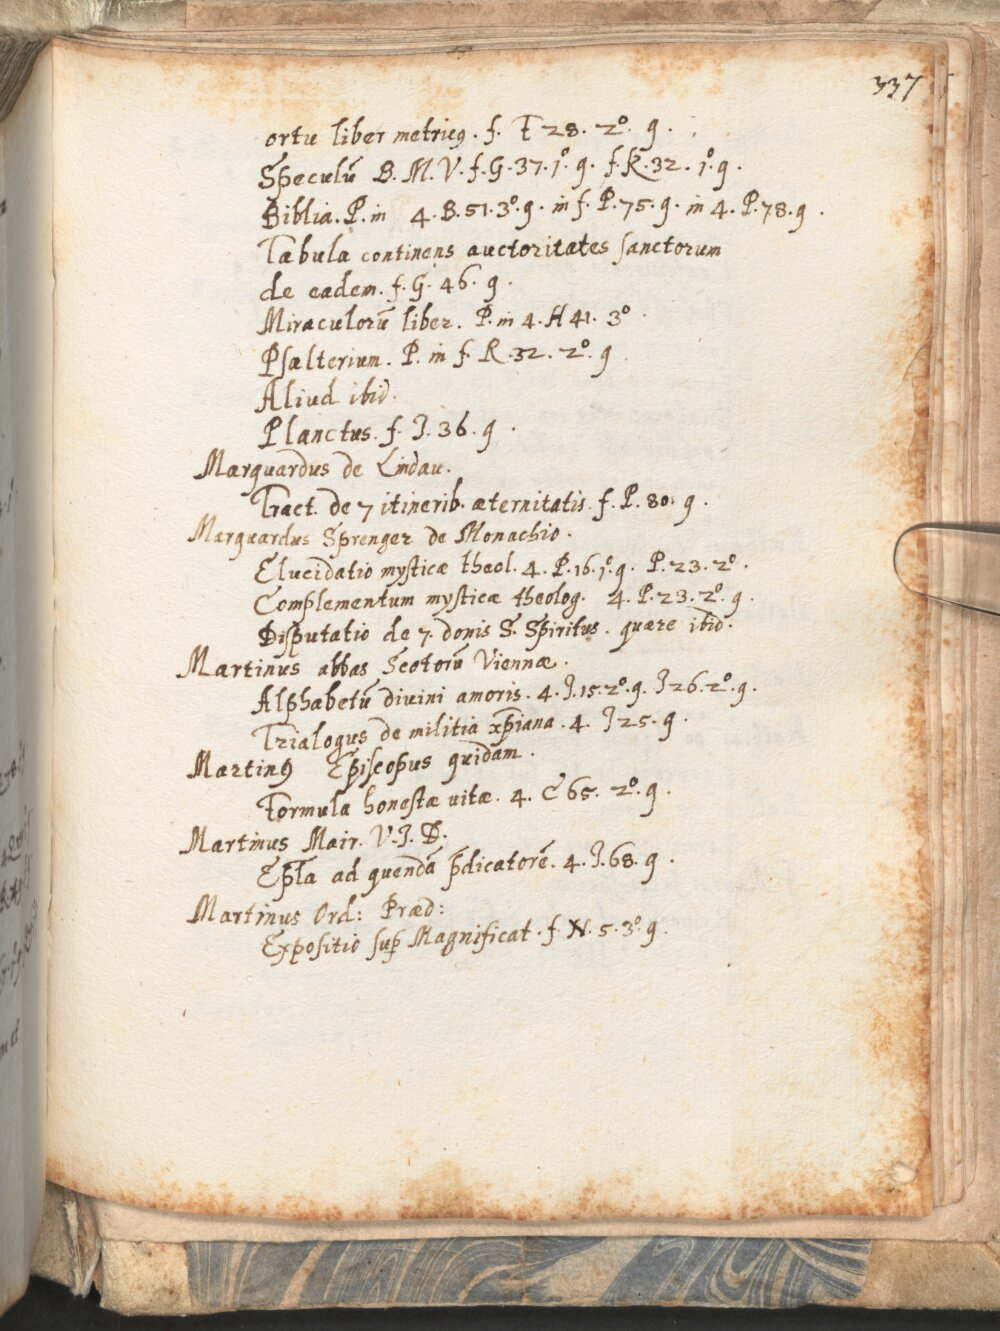 337
ortu liber metricꝰ. f. E 28. 2º. g.
Speculū B. M. V. f. G. 37. 1º. g. f. K. 32. 1º. g.
Biblia. P. in 4. B. 51. 3º. g. in f. P. 75. g. in 4. P. 78. g.
Tabula continens auctoritates sanctorum
de eadem. f. G. 46. g.
Miraculorū liber. P. in 4. H 41. 3º.
Psalterium. P. in f. R. 32. 2º. g
Aliud ibid.
Planctus. f. J. 36. g.
Marquardus de Lindau.
Tract. de 7 itinerib. æternitatis. f. P. 80. g.
Marquardus Sprenger de Monachio.
Elucidatio mysticæ theol. 4. P. 16. 1º. g. P. 23. 2º.
Complementum mysticæ theolog. 4. P. 23. 2º. g.
Disputatio de 7. donis S. Spiritus. quære ibid.
Martinus abbas Scotorū Viennæ.
Alphabetū diuini amoris. 4. J. 15. 2º. g. J 26. 2º. g.
Trialogus de militia xp̄iana. 4. J 25. g.
Martinꝰ Episcopus quidam.
Formula honestæ uitæ. 4. C 65. 2º. g.
Martinus Mair. V. J. D.
Ep̄la ad quendā p̄dicatorē. 4. J. 68. g.
Martinus Ord: Præd:
Expositio sup̱ Magnificat. f. N. 5. 3º. g.